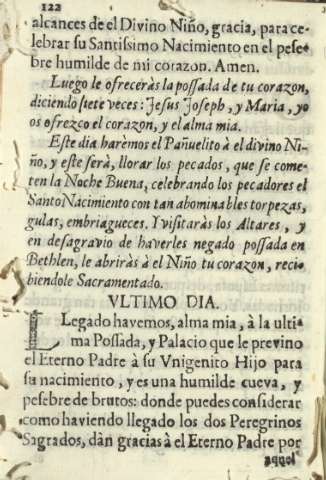 122
alcances de el Divino Niño, gracia, para ce-
lebrar su Santissimo Nacimiento en el pese-
bre humilde de mi corazon. Amen.
Luego le ofreceràs la possada de tu corazon,
diciendo siete veces: Jesus Joseph, y Maria, yo
os ofrezco el corazon, y el alma mia.
Este dia harèmos el Pañuelito à el divino Ni-
ño, y este serà, llorar los pecados, que se come-
ten la Noche Buena, celebrando los pecadores el
Santo Nacimiento con tan abominables torpezas,
gulas, embriagueces. Y visitaràs los Altares, y
en desagravio de haverles negado possada en
Bethlen, le abriràs à el Niño tu corazon, reci-
biendole Sacramentado.
VLTIMO DIA.
Llegado havemos, alma mia, à la ulti-
ma Possada, y Palacio que le previno
el Eterno Padre à su Vnigenito Hijo para
su nacimiento, y es una humilde cueva, y
pesebre de brutos: donde puedes considerar
como haviendo llegado los dos Peregrinos
Sagrados, dàn gracias à el Eterno Padre por
aquel